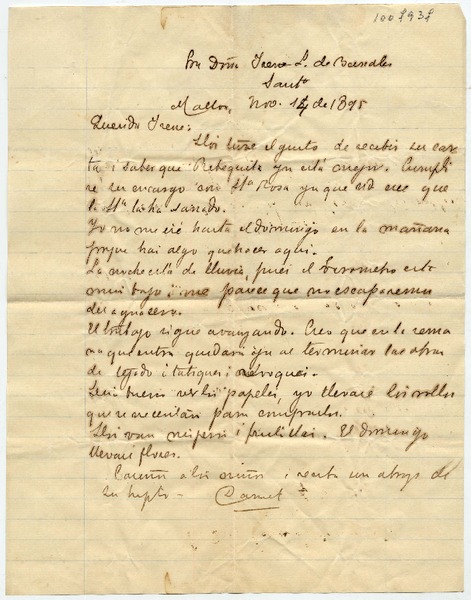 1007937
Sra Doña Irene L. de Barrales
Santo
Malloa, Nov. 14 de 1895
Querida Irene:
Hoi tuve el gusto de recibir su car
ta i saber que Rebequita ya está mejor. Cumpli
ré su encargo con Sta Rosa ya que Ud cree que
la Sta la ha sanado.
Yo no me iré hasta el domingo en la mañana
porque hai algo que hacer aquí.
La noche está de lluvia, pues el barometro está
mui bajo i me parece que no escaparemos
del aguacero.
El trabajo sigue avanzando. Creo que en la sema
na que entra quedarán ya al terminar las obras
de tejado i tabiques i
Seria bueno ver los papeles, yo llevaré los rollos
que se necesitan para comprarlos.
Hoi van i frutillas. El domingo
llevaré flores.
Cariños a los niños i reciba un abrazo de
su